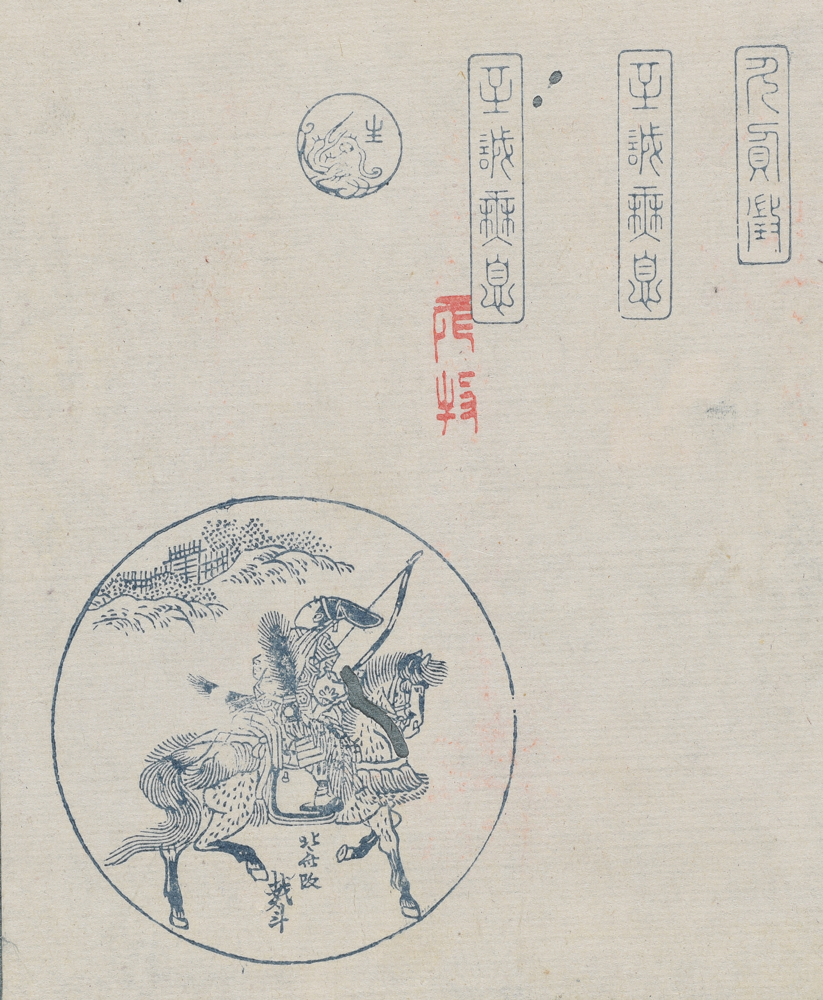 至誠無息
至誠無息
生
北斎改
戴斗